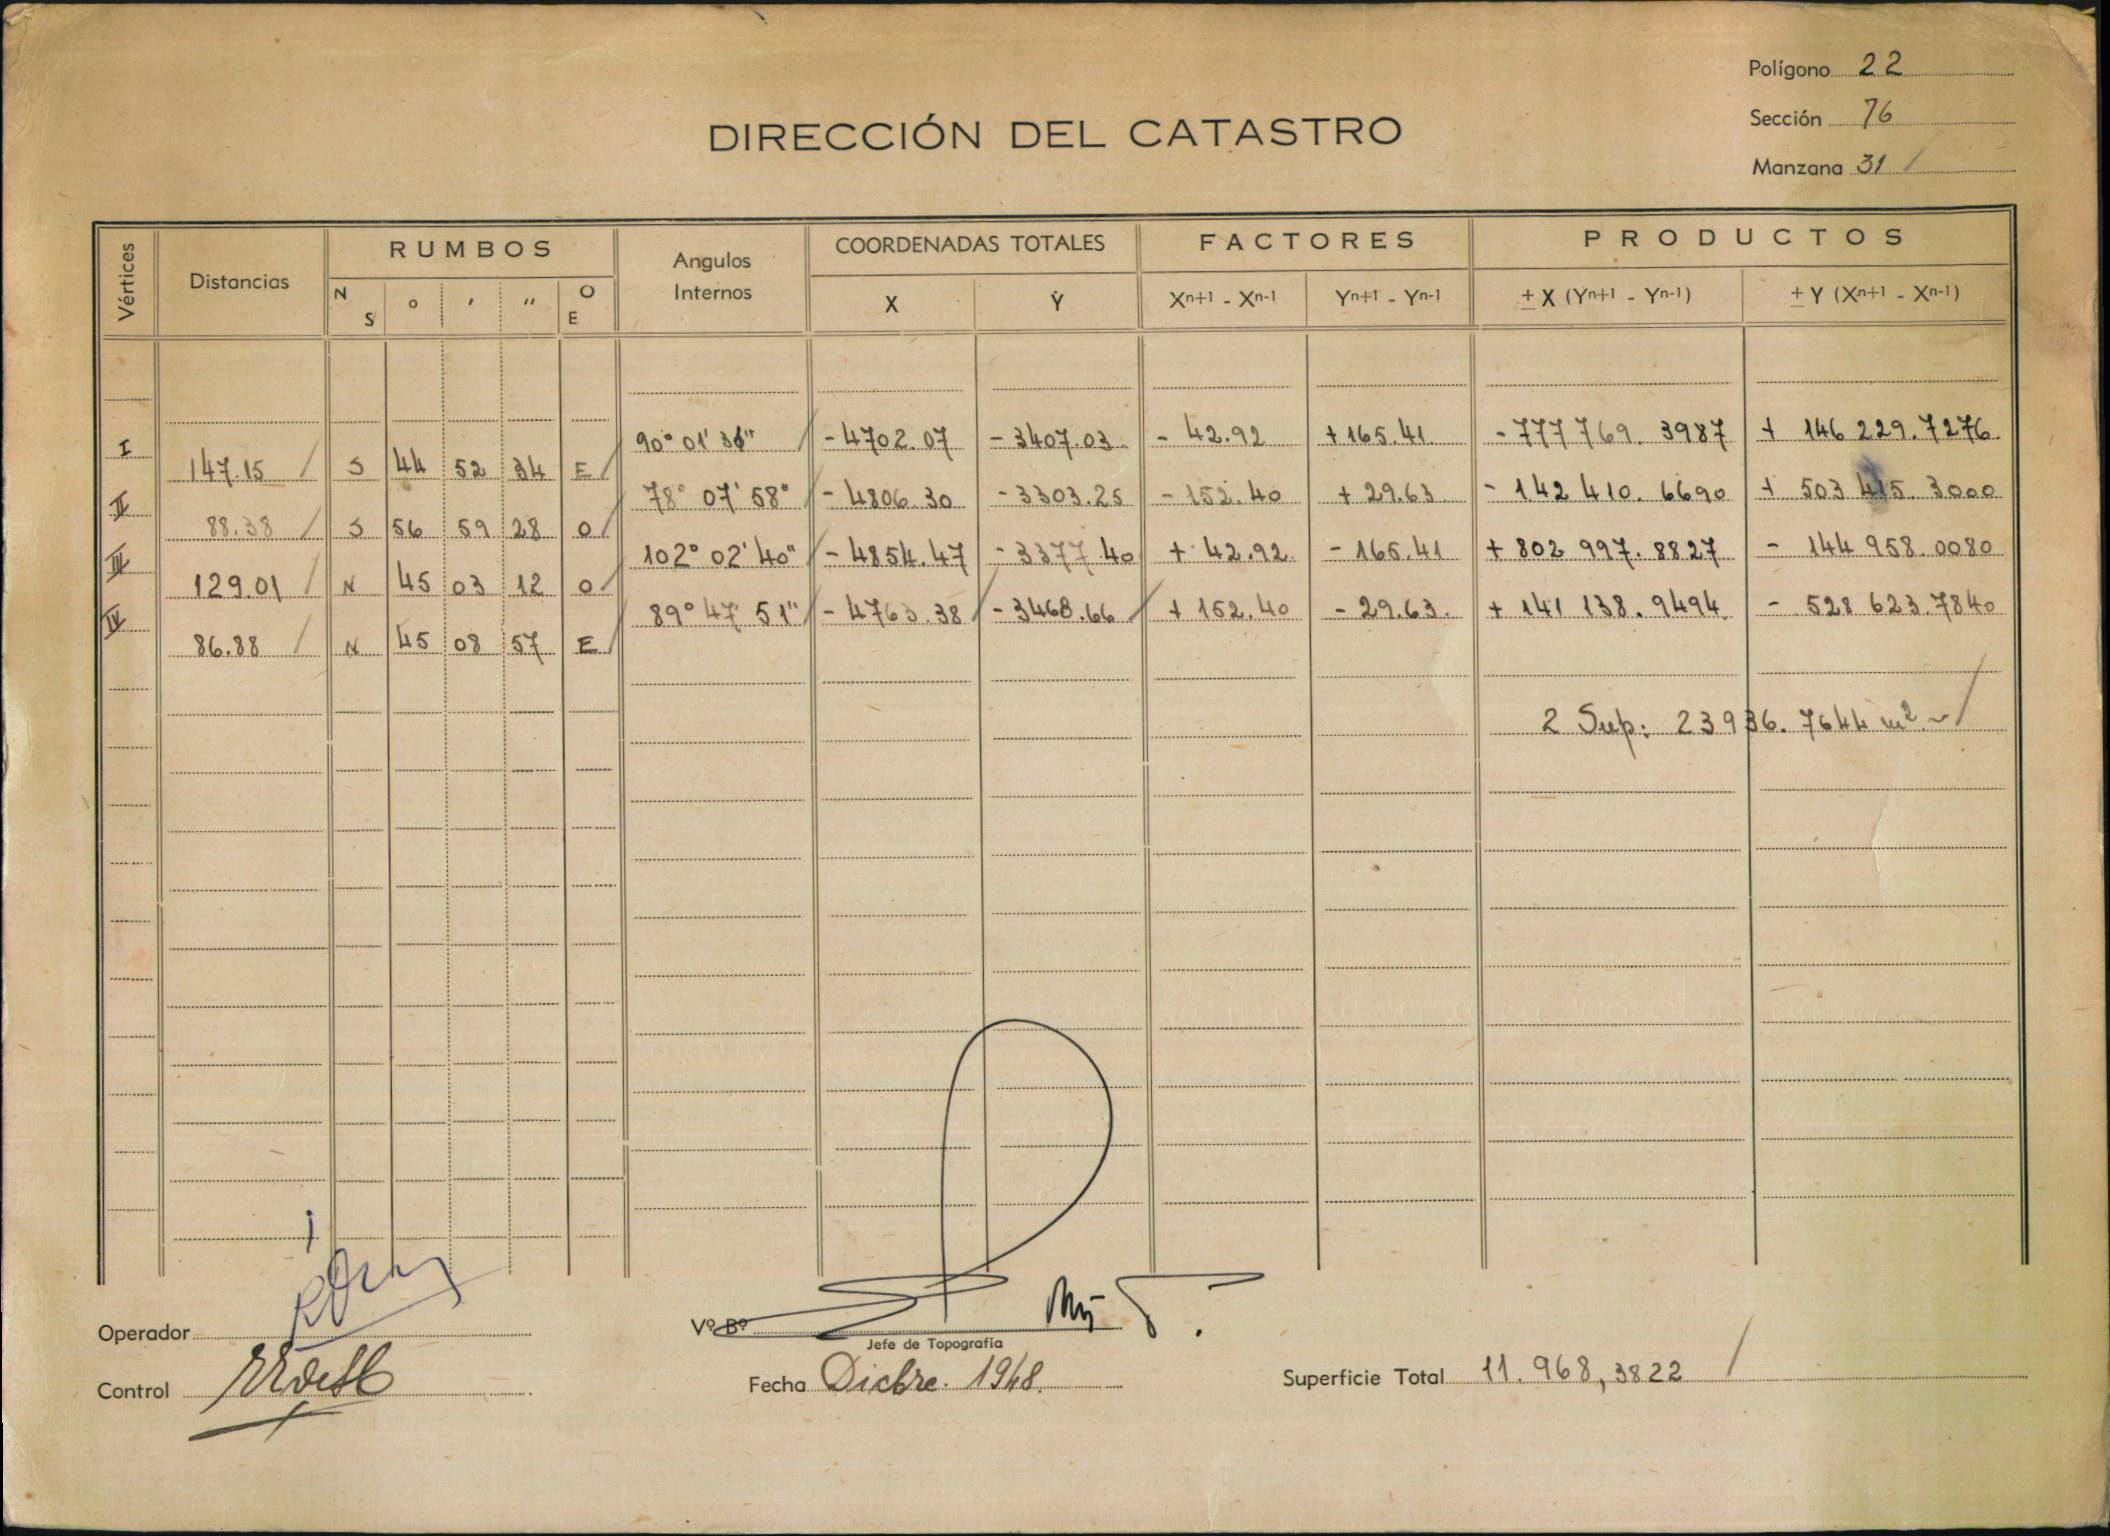 Polígono 22
Sección 76
Manzana 31
DIRECCIÓN DEL CATASTRO
Vértices Distancias RUMBOS Angulos Internos COORDENADAS TOTALES FACTORES PRODUCTOS
N S o ' '' O E X Y Xn+1 - Xn-1 Yn+1 - Yn-1 ± X (Yn+1 - Yn-1) ± Y (Xn+1 - Xn-1)
I 90° 01' 31" - 4702.07 - 3407.03 - 42.92 + 165.41 - 777 769. 3987 + 146 229. 7276
147.15 S 44 52 34 E
II 78° 07' 58" - 4806.30 - 3303.25 - 152.40 + 29.63 - 142 410. 6690 + 503 415. 3000
88.38 S 56 59 28 O
III 102° 02' 40" - 4854.47 - 3377.40 + 42.92 - 165.41 + 802 997. 8827 - 144 958. 0080
129.01 N 45 03 12 O
IV 89° 47' 51" - 4763.38 - 3468.66 + 152.40 - 29.63. + 141 138. 9494 - 528 623. 7840
86.88 N 45 08 57 E
2 Sup: 23936. 7644 m²
Operador
Vº Bº
Jefe de Topografía
Control
Fecha Dicbre. 1948.
Superficie Total 11.968,3822